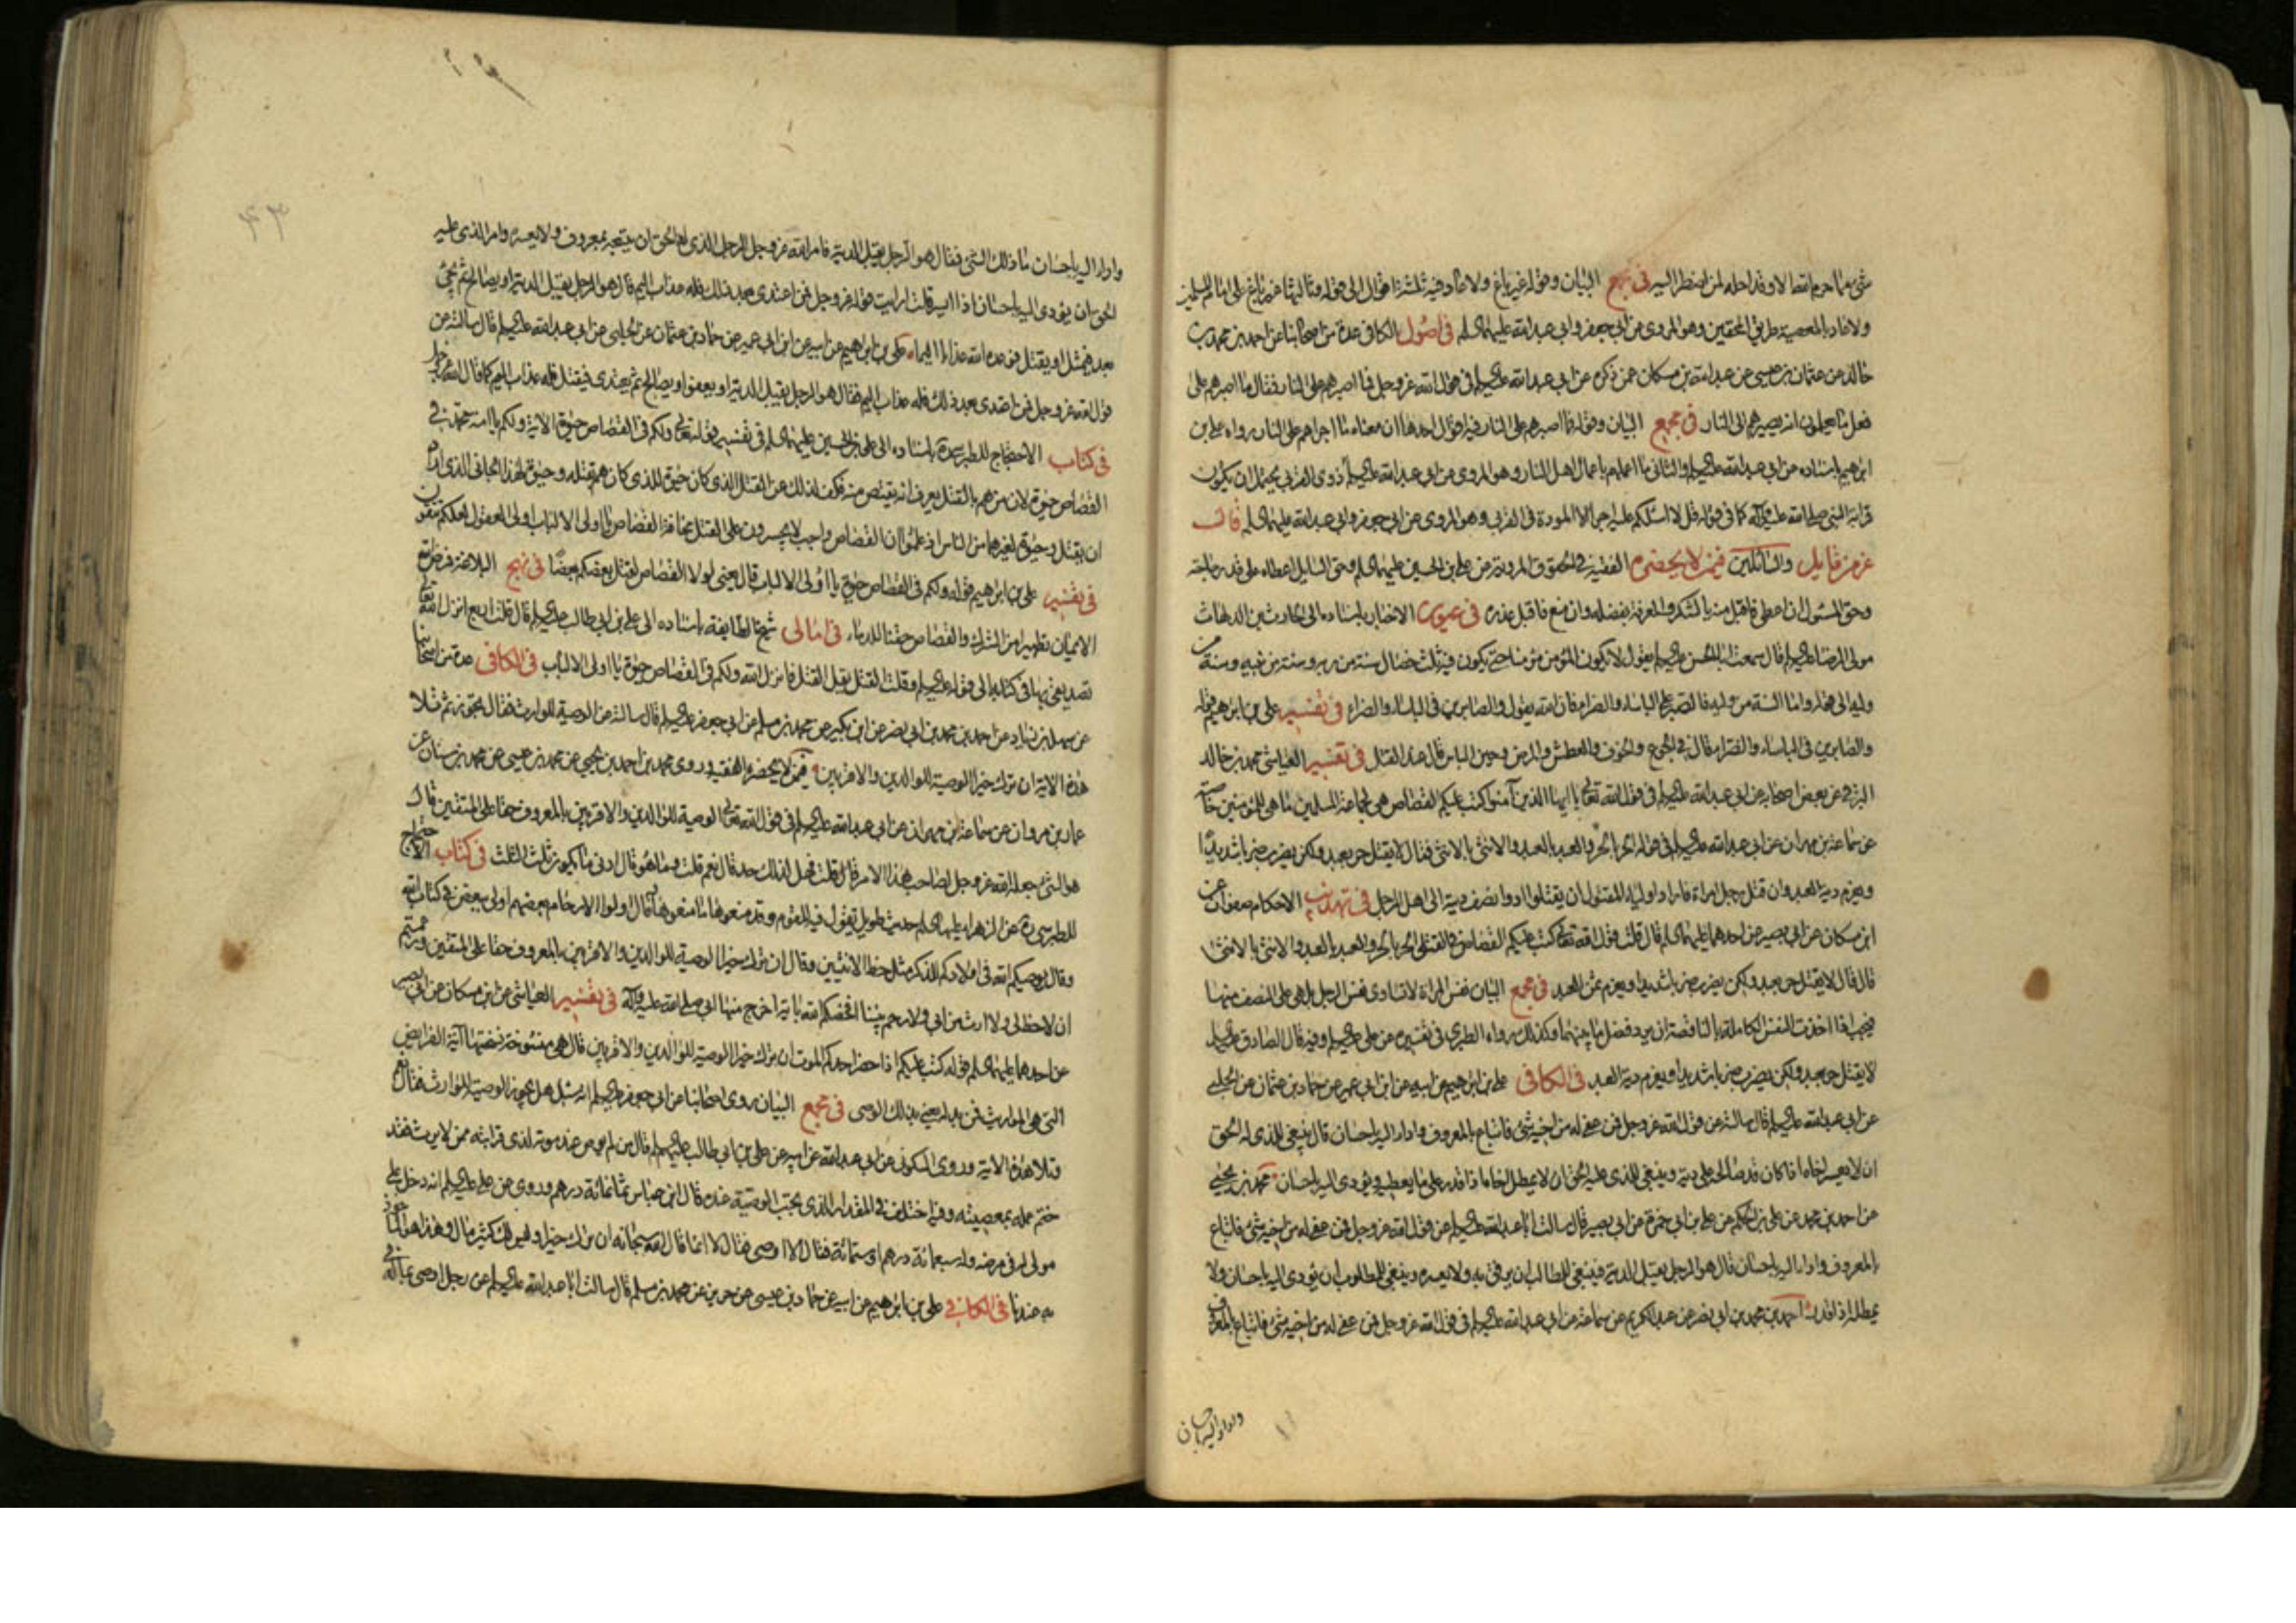 شئ مما حرم الله الا وقد احله لمن اضطر اليه في مجمع البيان وقوله غير باغ ولا عاد فيه ثلثة اقوال الى قوله وثالثها غير باغ على امام المسلمين
ولا عاد بالمعصية طريق المحقين وهو المروى عن ابي جعفر وابي عبد الله عليهما السلم في اصول الكافي عدة من اصحابنا عن احمد بن محمد بن
خالد عن عثمان بن عيسى عن عبد الله بن مسكان عمن ذكره عن ابي عبد الله عليه السلم في قول الله عز وجل فما اصبرهم على النار فقال ما اصبرهم على
فعل ما يعلمون انه يصيرهم الى النار في مجمع البيان وقوله فما اصبرهم على النار فيه اقوال احدها ان معناه ما اجراهم على النار رواه على بن
ابرهيم باسناده عن ابي عبد الله عليه السلم والثاني ما اعملهم باعمال اهل النار وهو المروى عن ابي عبد الله عليه السلم ذوى القربى يحتمل ان يكون
قرابة النبي صلى الله عليه وآله كما في قوله قل لا اسئلكم عليه اجرا الا المودة في القربى وهو المروى عن ابي جعفر وابي عبد الله عليهما السلم قال
عز من قايل والسائلين فيمن لا يحضره الفقيه في الحقوق المروية عن على بن الحسين عليهما السلم وحق السايل اعطاه على قدر حاجته
وحق المسئول ان اعطى فاقبل منه بالشكر والمعرفة بفضله وان منع فاقبل عذره في عيون الاخبار باسناده الى الحارث بن الدلهاث
مولى الرضا عليه السلم قال سمعت ابا الحسن عليه السلم يقول لا يكون المؤمن مؤمنا حتى يكون فيه ثلث خصال سنة من ربه وسنة من نبيه وسنة من
وليه الى قوله واما السنة من وليه فالصبر على الباساء والضراء فان الله يقول والصابرين في الباساء والضراء في تفسير على بن ابرهيم قوله
والصابرين في الباساء والضراء قال في الجوع والخوف والعطش والمرض وحين الباس قال عند القتل في تفسير العياشي محمد بن خالد
البرقي عن بعض اصحابه عن ابي عبد الله عليه السلم في قول الله تعالى يا ايها الذين آمنوا كتب عليكم القصاص هي لجماعة المسلمين ما هي للمؤمنين خاصة
عن سماعة بن مهران عن ابي عبد الله عليه السلم في قوله الحر بالحر والعبد بالعبد والانثى بالانثى فقال لا يقتل حر بعبد ولكن يضرب ضربا شديدا
ويغرم دية العبد وان قتل رجل امراة فاراد اولياء المقتول ان يقتلوا ادوا نصف ديته الى اهل الرجل في تهذيب الاحكام صفوان عن
ابن مسكان عن ابي بصير عن احدهما عليهما السلم قال قلت قول الله تعالى كتب عليكم القصاص في القتلى الحر بالحر والعبد بالعبد والانثى بالانثى
قال قال لا يقتل حر بعبد ولكن يضرب ضربا شديدا ويغرم ثمن العبد في مجمع البيان نفس المراة لا تساوى نفس الرجل بل هى على النصف منها
فيجب اذا اخذت النفس الكاملة بالناقصة ان يرد فضل ما بينهما وكذلك رواه الطبرى في تفسيره عن على عليه السلم وفيه قال الصادق عليه السلم
لا يقتل حر بعبد ولكن يضرب ضربا شديدا ويغرم دية العبد في الكافى على بن ابرهيم عن ابيه عن ابن ابي عمير عن حماد بن عثمان عن الحلبي
عن ابي عبد الله عليه السلم قال سالته عن قول الله عز وجل فمن عفى له من اخيه شئ فاتباع بالمعروف واداء اليه باحسان قال ينبغي للذى له الحق
ان لا يعسر اخاه اذا كان قد صالحه على دية وينبغي للذى عليه الحق ان لا يمطل اخاه اذا قدر على ما يعطيه ويؤدى اليه باحسان محمد بن يحيى
عن احمد بن محمد عن على بن الحكم عن على بن ابي حمزة عن ابي بصير قال سالت ابا عبد الله عليه السلم عن قول الله عز وجل فمن عفى له من اخيه شئ فاتباع
بالمعروف واداء اليه باحسان قال هو الرجل يقبل الدية فينبغي للطالب ان يرفق به ولا يعسره وينبغي للمطلوب ان يؤدى اليه باحسان ولا
يمطله اذا قدر احمد بن محمد بن ابي نصر عن عبد الكريم عن سماعة عن ابي عبد الله عليه السلم في قول الله عز وجل فمن عفى له من اخيه شئ فاتباع بالمعروف
واداء اليه باحسان
٤٣
واداء اليه باحسان ما ذلك الشئ فقال هو الرجل يقبل الدية فامر الله عز وجل الرجل الذى له الحق ان يتبعه بمعروف ولا يعسره وامر الذى عليه
الحق ان يؤدى اليه باحسان اذا ايسر قلت ارايت قوله عز وجل فمن اعتدى بعد ذلك فله عذاب اليم قال هو الرجل يقبل الدية او يصالح ثم يجئ
بعد فيمثل او يقتل فوعده الله عذابا اليما على بن ابرهيم عن ابيه عن ابن ابي عمير عن حماد بن عثمان عن الحلبى عن ابي عبد الله عليه السلم قال سالته عن
قول الله عز وجل فمن اعتدى بعد ذلك فله عذاب اليم فقال هو الرجل يقبل الدية او يعفوا او يصالح ثم يعتدى فيقتل فله عذاب اليم كما قال الله عز وجل
في كتاب الاحتجاج للطبرسى ره باسناده الى على بن الحسين عليهما السلم في تفسير قوله تعالى ولكم في القصاص حيوة الاية ولكم يا امة محمد في
القصاص حيوة لان من هم بالقتل يعرف انه يقتص منه فكف لذلك عن القتل الذى كان حيوة للذى كان هم بقتله وحيوة لهذا الجانى الذى اراد
ان يقتل وحيوة لغيرهما من الناس اذ علموا ان القصاص واجب لا يجسرون على القتل مخافة القصاص يا اولى الالباب اولى العقول لعلكم تتقون
في تفسير على بن ابرهيم قوله ولكم في القصاص حيوة يا اولى الالباب قال يعنى لولا القصاص لقتل بعضكم بعضا في نهج البلاغة فرض الله
الايمان تطهيرا من الشرك والقصاص حقنا للدماء في امالى شيخ الطايفة باسناده الى على بن ابي طالب عليه السلم قال قلت اربع انزل الله تعالى
تصديقى بها في كتابه الى قوله عليه السلم وقلت القتل يقل القتل فانزل الله ولكم في القصاص حيوة يا اولى الالباب في الكافى عدة من اصحابنا
عن سهل بن زياد عن احمد بن محمد بن ابي نصر عن ابن بكير عن محمد بن مسلم عن ابي جعفر عليه السلم قال سالته عن الوصية للوارث فقال تجوز ثم تلا
هذه الاية ان ترك خيرا الوصية للوالدين والاقربين فيمن لا يحضره الفقيه وروى محمد بن احمد بن يحيى عن محمد بن عيسى عن محمد بن سنان عن
عمار بن مروان عن سماعة بن مهران عن ابي عبد الله عليه السلم في قول الله تعالى الوصية للوالدين والاقربين بالمعروف حقا على المتقين قال
هو الشئ جعله الله عز وجل لصاحب هذا الامر قال قلت فهل لذلك حد قال نعم قلت وما هو قال ادنى ما يكون ثلث الثلث في كتاب الاحتجاج
للطبرسى ره عن الزهراء عليها السلم حديث طويل تقول فيه للقوم وقد منعوها ما منعوها قال واولوا الارحام بعضهم اولى ببعض في كتاب الله
وقال يوصيكم الله في اولادكم للذكر مثل حظ الانثيين وقال ان ترك خيرا الوصية للوالدين والاقربين بالمعروف حقا على المتقين وزعمتم
ان لا حظ لى ولا ارث من ابى ولا رحم بيننا افخصكم الله باية اخرج منها ابي صلى الله عليه وآله في تفسير العياشي عن ابن مسكان عن ابي بصير
عن احدهما عليهما السلم قوله كتب عليكم اذا حضر احدكم الموت ان ترك خيرا الوصية للوالدين والاقربين قال هى منسوخة نسختها آية الفرايض
التى هى المواريث فمن بدله يعنى بذلك الوصى في مجمع البيان روى اصحابنا عن ابي جعفر عليه السلم انه سئل هل تجوز الوصية للوارث فقال نعم
وتلا هذه الاية وروى السكونى عن ابي عبد الله عن ابيه عن على بن ابي طالب عليهم السلم قال من لم يوص عند موته لذى قرابته ممن لا يرث فقد
ختم عمله بمعصيته وفيه اختلف في المقدار الذى يجب الوصية عنده قال ابن عباس ثمانمائة درهم وروى عن على عليه السلم انه دخل على
مولى له في مرضه وله سبعمائة درهم او ستمائة فقال الا اوصى فقال لا انما قال الله سبحانه ان ترك خيرا وليس لك كثير مال وهذا هو الماخوذ
به عندنا في الكافى على بن ابرهيم عن ابيه عن حماد بن عيسى عن حريز عن محمد بن مسلم قال سالت ابا عبد الله عليه السلم عن رجل اوصى بماله في